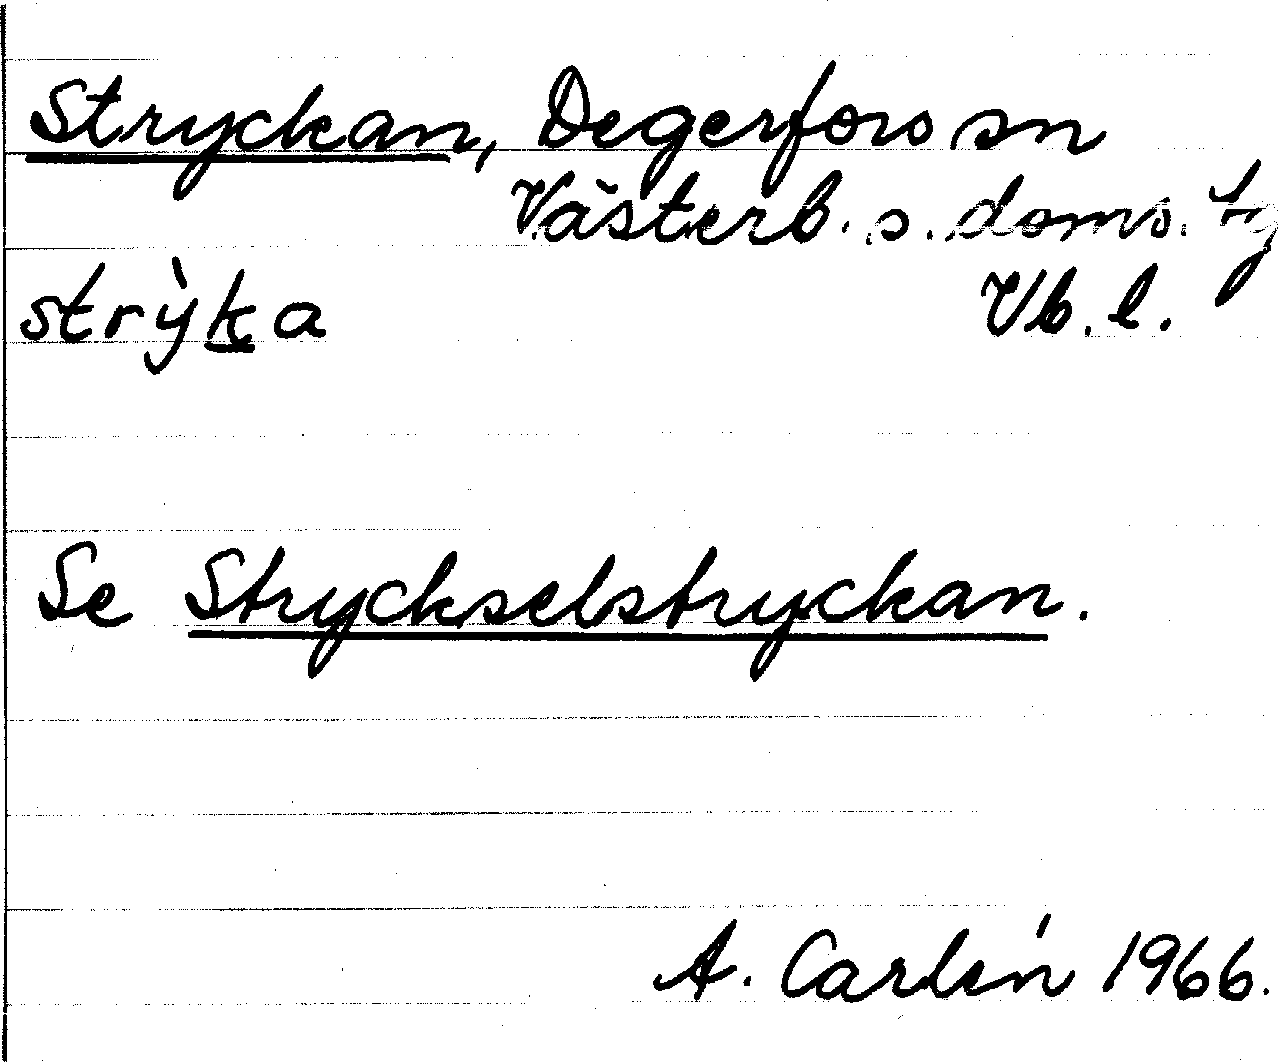 Stryckan, Degerfors sn
Västerb. s. doms. tg
strỳka Vb. l.
Se Stryckselstryckan.
A. Carlén 1966.